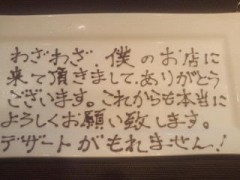 わざわざ、僕のお店に
来て頂きまして、ありがとう
ございます。これからも本当に
ようしくお願い致します。
デザートがもれません!